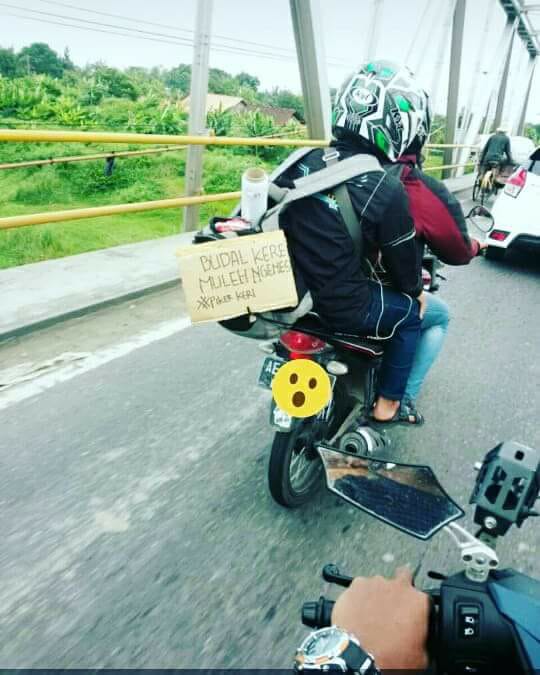 BUDAL KERE
MULEH NGENES
※PIKER KERI
AE